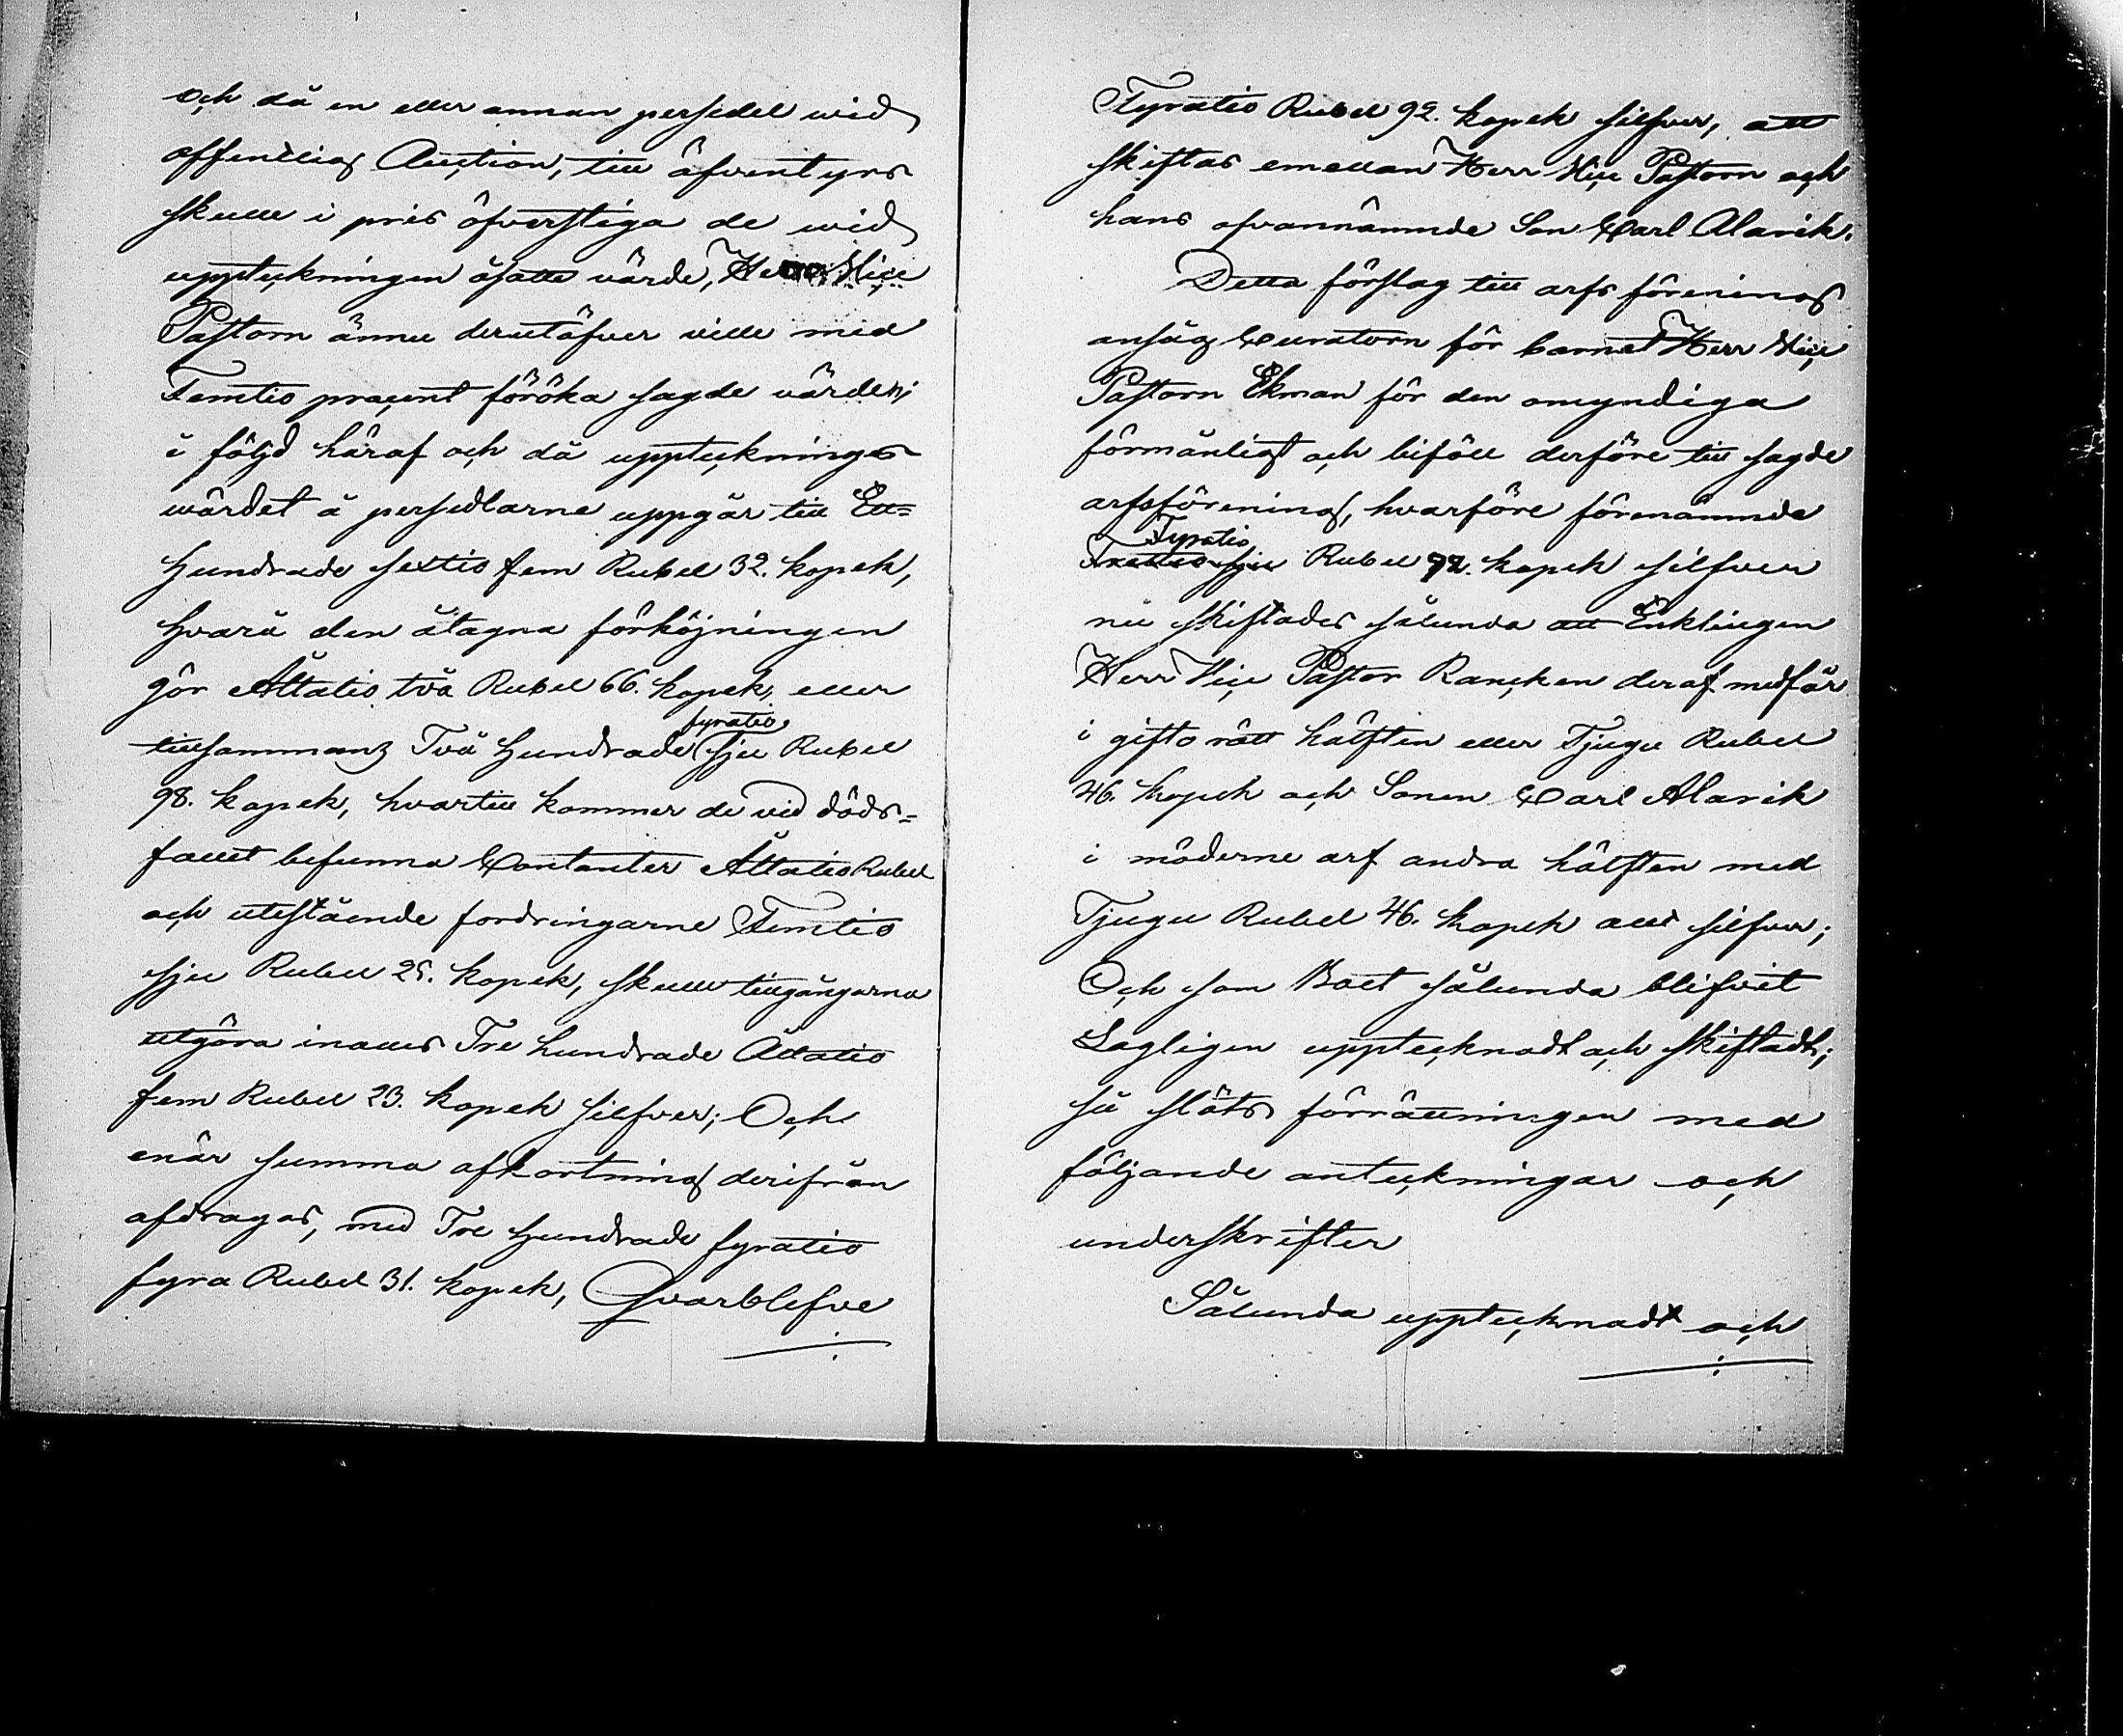 och då en eller annan persedel wid
offentlig Auction, till äfventyrs
skulle i pris öfverstiga de wid
uppteckningen åsatte värde, Herr Vice
Pastorn ännu derutöfver ville med
Femtio procent föröka sagde värden;
i följd häraf och då upptecknings
wärdet å persedlarne uppgår till Ett-
hundrade sextio fem Rubel 32. kopek,
hvarå den åtagna förhöjningen
gör Åttatio två Rubel 66. kopek, eller
fyratio
tillsammans Två hundrade sju Rubel
98. kopek, hvartill kommer de vid döds-
fallet befunna Contanter Åttatio Rubel
och utestående fordringarne Femtio
sju Rubel 25. kopek, skulle tillgångarna
utgöra inalles Tre hundrade Åttatio
fem Rubel 23. kopek silfver; Och
enär summa afkortning derifrån
afdragas, med Tre hundrade fyratio
fyra Rubel 31. kopek, Qvarblefve
Fyratio Rubel 92. kopek silfver, att
skiftas emellan Herr Vice Pastorn och
hans ofvannämnde Son Carl Alarik.
Detta förslag till arfs förening
ansåg Curatorn för barnet Herr Vice
Pastorn Ekman för den omyndiga
förmånligt och biföll derföre till sagde
arfsförening, hvarföre förenämnda
Fyratio
Trettio sju Rubel 92. kopek silfver
nu skiftades sålunda att Enklingen
Herr Vice Pastor Rancken deraf medfår
i gifto rätt hälften eller Tjugu Rubel
46. kopek och Sonen Carl Alarik
i möderne arf andra hälften med
Tjugu Rubel 46. kopek allt silfver;
Och som Boet sålunda blifvit
Lagligen upptecknadt och skiftadt;
så slöts förrättningen med
följande anteckningar och
underskrifter
Sålunda upptecknadt och